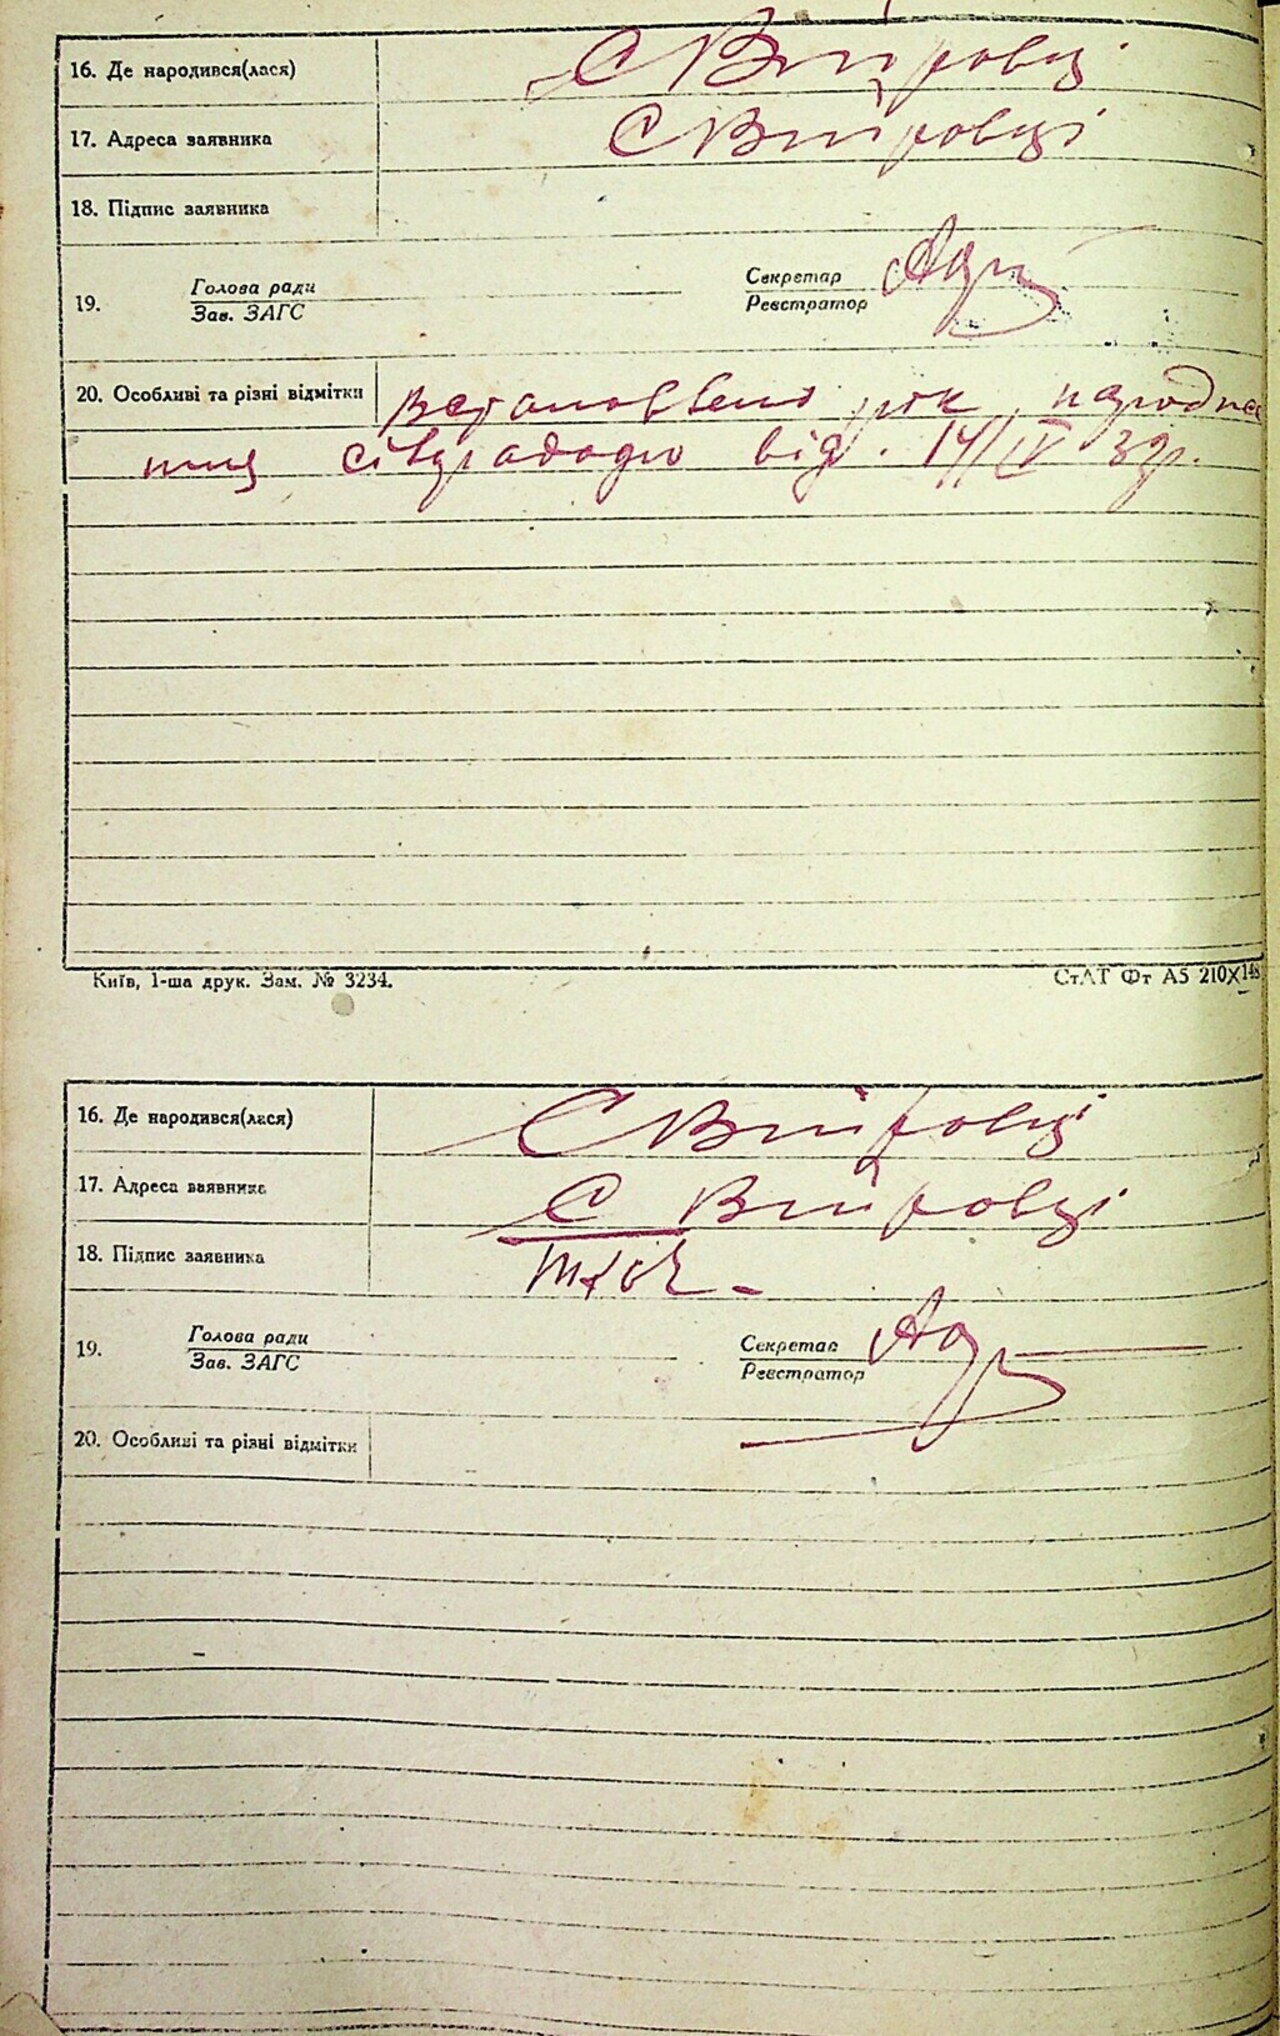 16. Де народився(лася) С Війтовці
17. Адреса заявника С Війтовці
18. Підпис заявника
19. Голова ради Секретар
Зав. ЗАГС Реєстратор
20. Особливі та різні відмітки встановлено рік народжен
ння сільрадою від. 14/IV 32р.
Київ, 1-ша друк. Зам. № 3234. СтАТ Фт А5 210X148
16. Де народився(лася) С Війтовці
17. Адреса заявника С Війтовці
18. Підпис заявника
19. Голова ради Секретар
Зав. ЗАГС Реєстратор
20. Особливі та різні відмітки